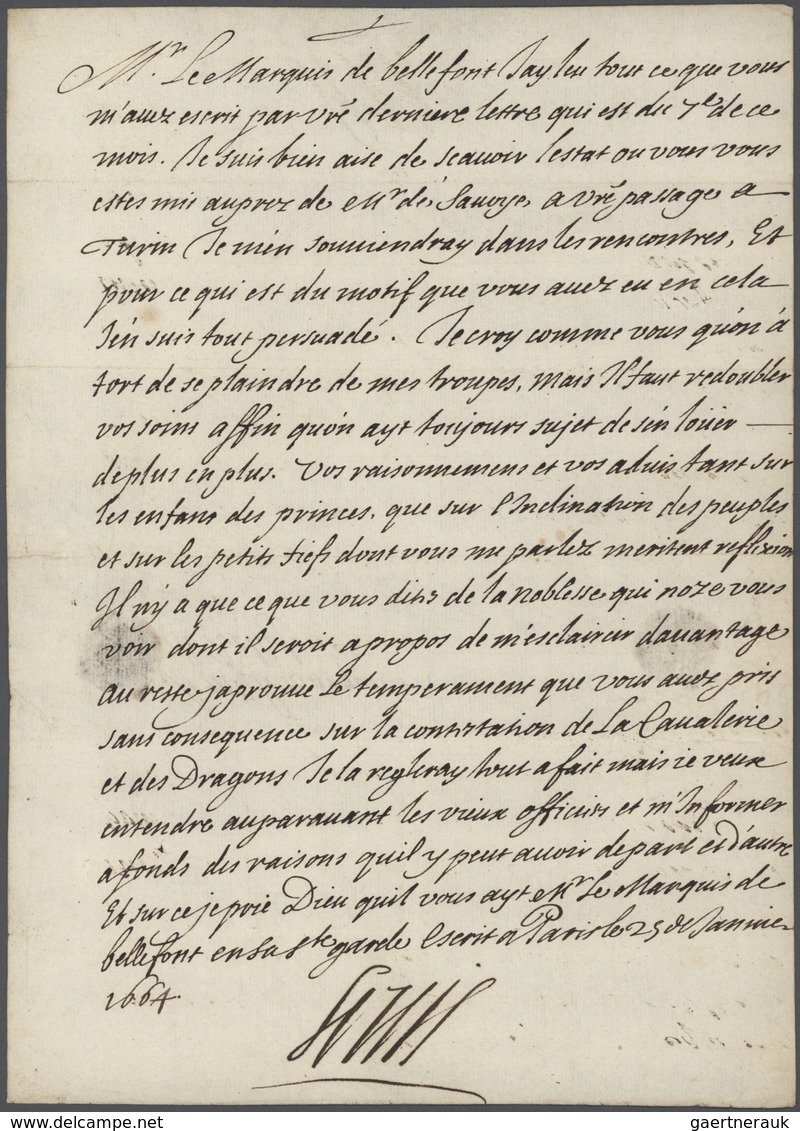 Mr. Le Marquis de bellefont Jay leu tout ce que vous
m'auez escrit par vrê derniere lettre qui est du 7e de ce
mois. Je suis bien aise de scauoir lestat ou vous vous
estes mis auprez de Mr de Sauoye, a vrê passage a
Turin Je m'en souuiendray dans les rencontres, Et
pour ce qui est du motif que vous auez eu en cela
J'en suis tout persuadé. Je croy comme vous qu'on à
tort de se plaindre de mes troupes, mais Il faut redoubler
vos soins affin qu'on ayt toujours sujet de s'en loüer —
de plus en plus. Vos raisonnemens et vos aduis tant sur
les enfans des princes, que sur l'Inclination des peuples
et sur les petits fiefs dont vous me parlez meritent reflixion
Il n'y a que ce que vous dites de la noblesse qui n'oze vous
voir dont il seroit a propos de m'esclaircir dauantage
au reste japrouue Le temperament que vous auez pris
sans consequence sur la contestation de La Caualerie
et des Dragons Je la regleray tout a fait mais ie veux
entendre auparauant les vieux officiers et m'Informer
a fonds des raisons quil y peut auoir de part et d'autre
Et sur ce je prie Dieu quil vous ayt Mr Le Marquis de
bellefont en sa ste garde Escrit a Paris le 25 de Januier
1664.
Louis
gaertnerauk